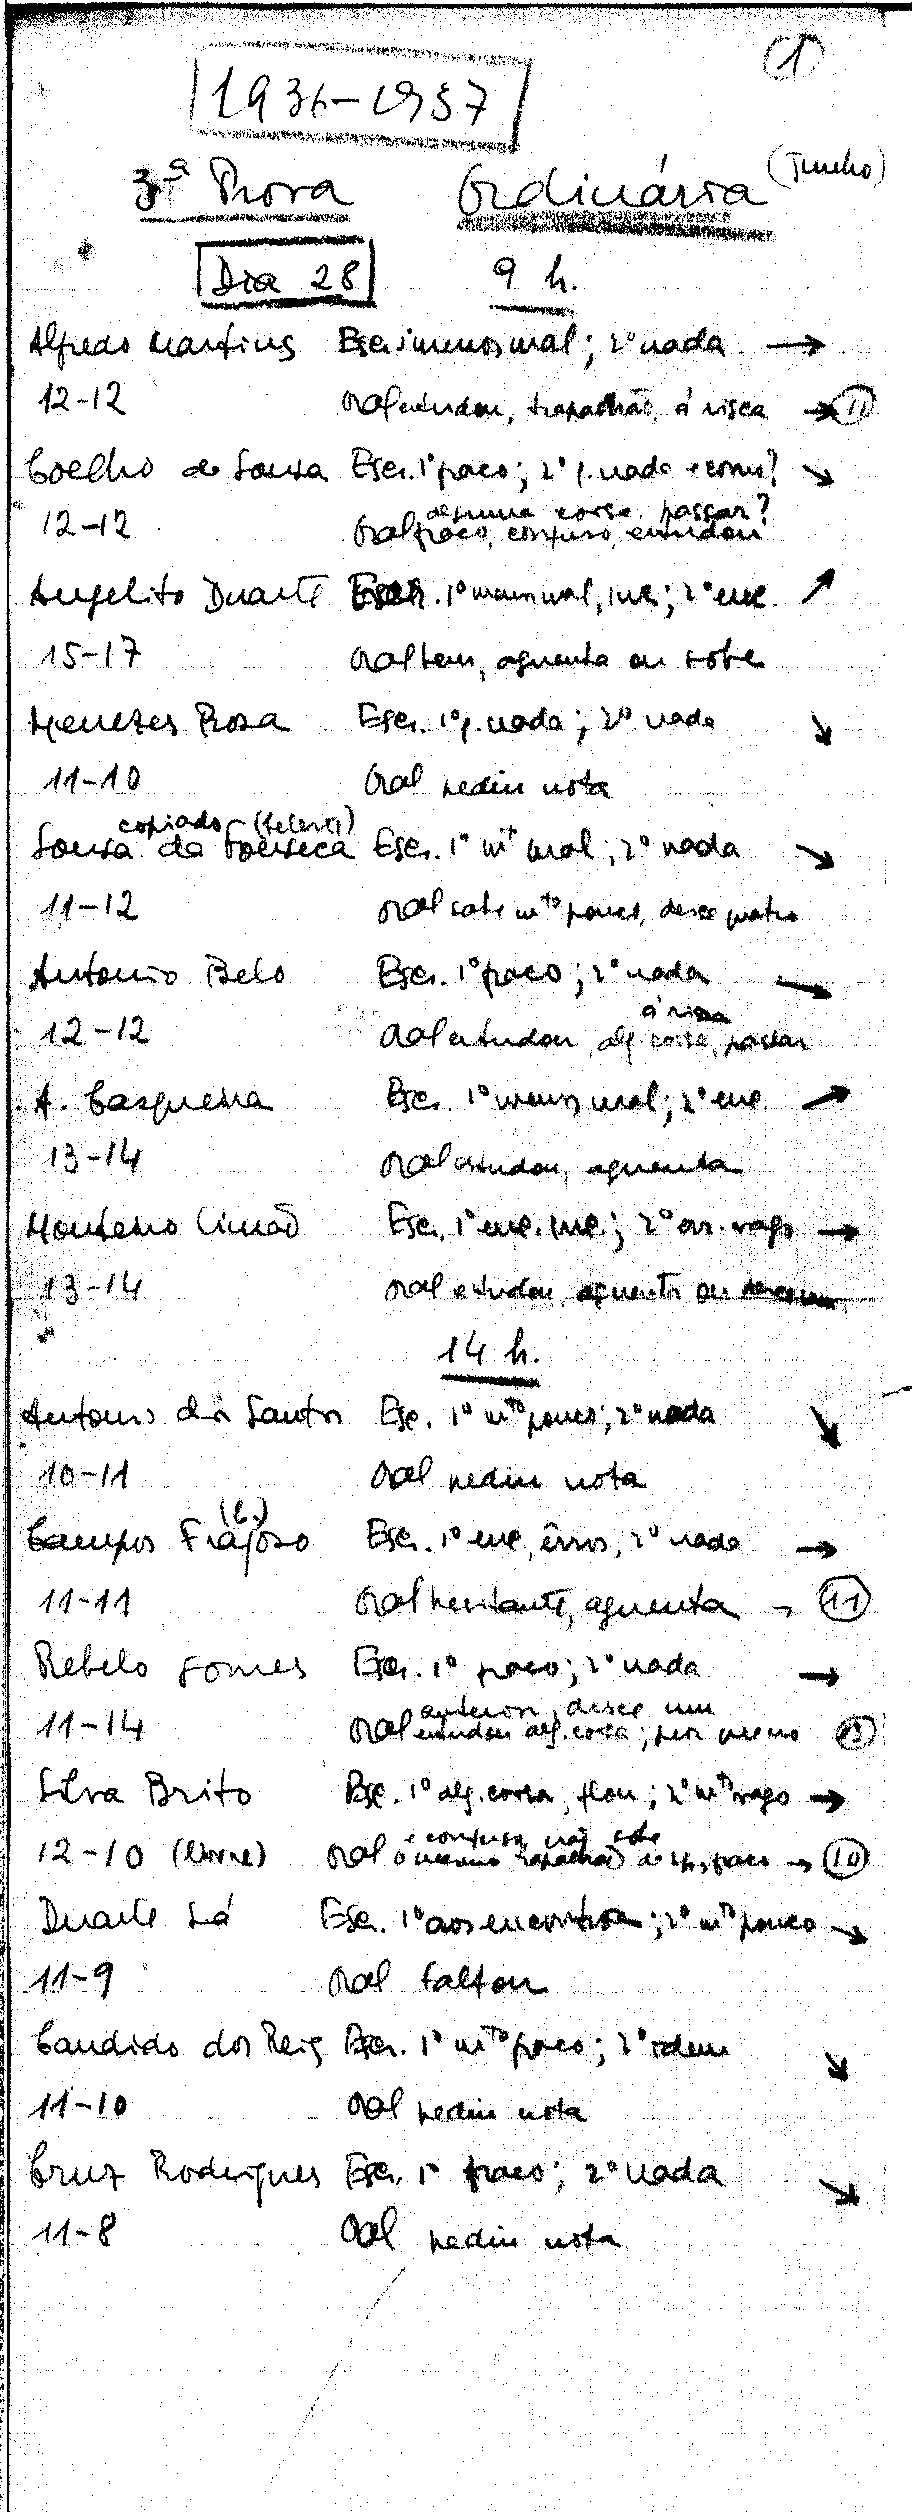 1
1936-1937
3ª Prova Ordinária (Junho)
Dia 28 9 h.
Alfredo Martins Escr. menos mal; 2º nada →
12-12 Oral estudou, trapalhão, á risca → 11
Coelho de Sousa Escr. 1º fraco; 2º q. nada ↘
alguma coisa. passar?
12-12 Oral fraco, confuso, estudou
Angelito Duarte Escr. 1º menos mal, inc.; 2º enc. ↗
15-17 Oral bem, aguenta ou sobe
Menezes Rosa Escr. 1º q. nada; 2º nada ↘
11-10 Oral pediu nota
copiado
Sousa da Fonseca Escr. 1º mtº mal; 2º nada ↘
11-12 Oral sabe mtº pouco, desce
Antonio Belo Escr. 1º fraco; 2º nada →
á risca
12-12 Oral estudou, alg. coisa, passar
A. Casqueira Escr. 1º menos mal; 2º enc. ↗
13-14 Oral estudou, aguenta
Monteiro Limão Escr. 1º enc. inc.; 2º vago →
13-14 Oral estudou, aguenta ou
14 h.
Antonio dos Santos Esc. 1º mtº pouco; 2º nada ↘
10-11 Oral pediu nota
(C.)
Campos Fragoso Escr. 1º enc, êrros, 2º nada →
11-11 Oral hesitante, aguenta → 11
Rebelo Gomes Escr. 1º fraco; 2º nada →
anterior, desce um
11-14 Oral estudou alg. coisa; pior 13
Silva Brito Esc. 1º alg. coisa, flou; 2º mtº vago →
e confusa, não sabe
12-10 Oral o mesmo trapalhão fraco → 10
Duarte Sá Escr. 1º aos encontros; 2º mtº pouco ↘
11-9 Oral faltou
Candido dos Reis Escr. 1º mtº fraco; 2º idem ↘
11-10 Oral pediu nota
Cruz Rodrigues Escr. 1º fraco; 2º nada ↘
11-8 Oral pediu nota